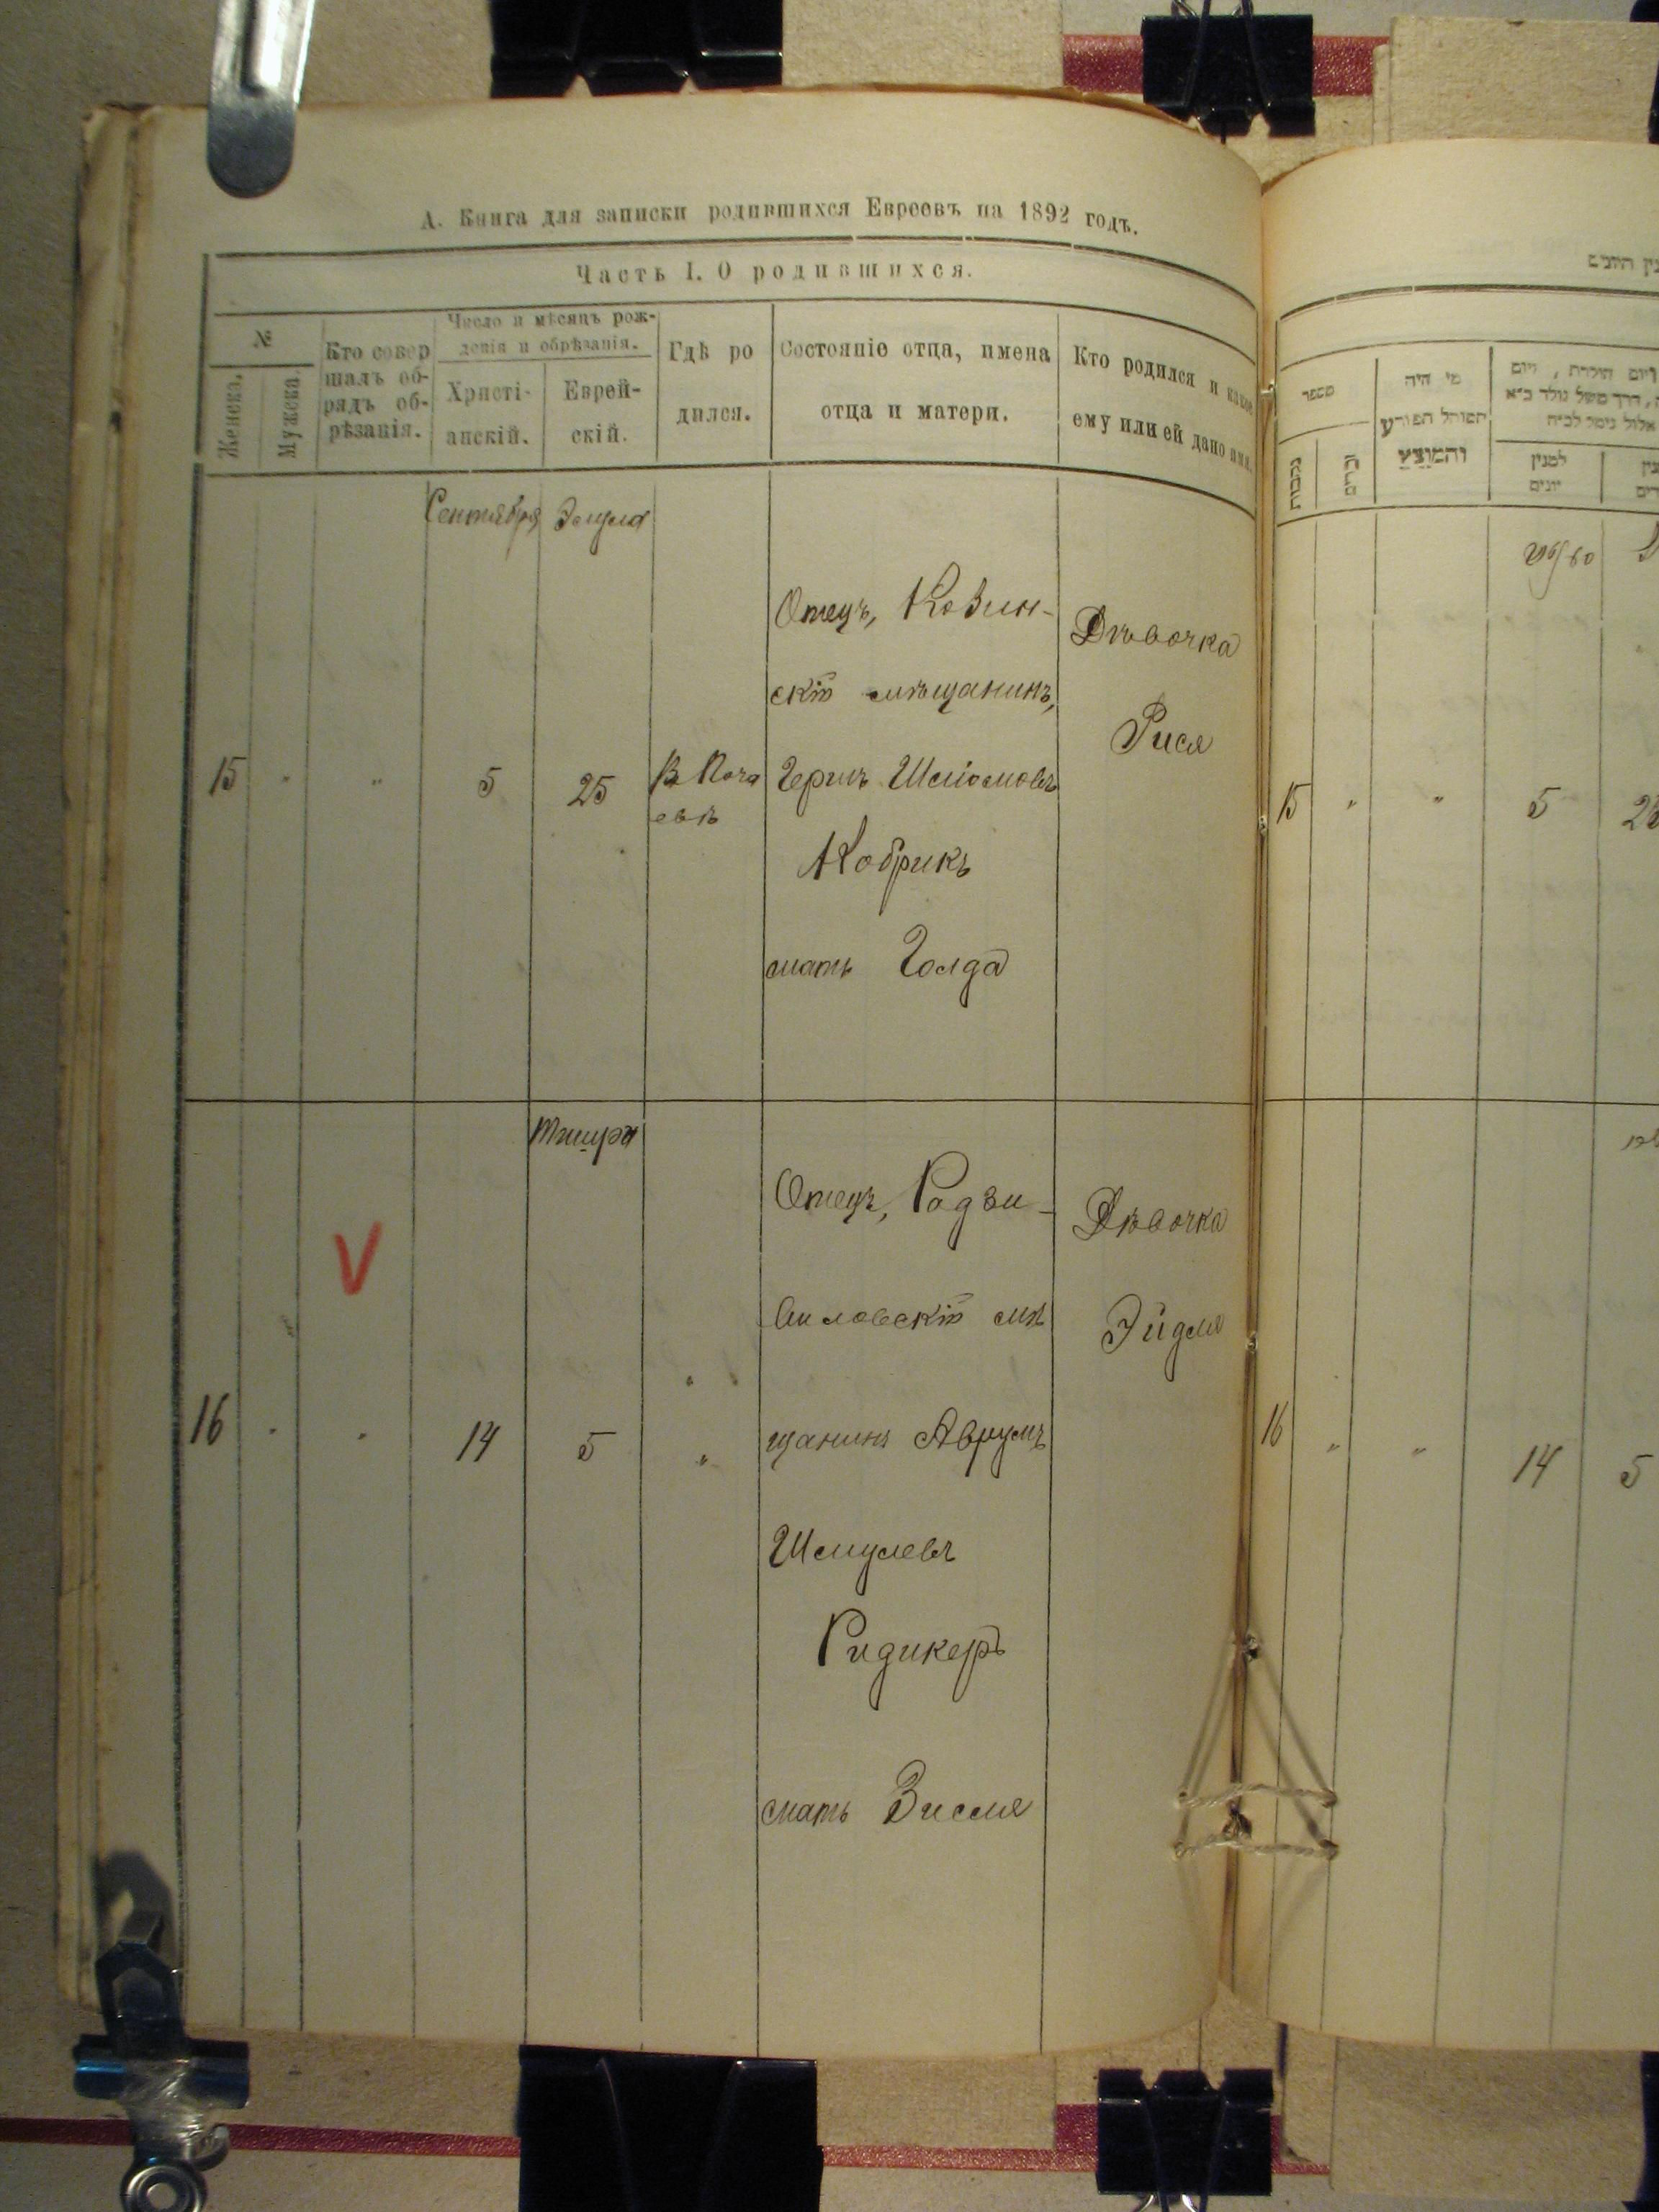 А. Книга для записки родившихся Евреевъ на 1892 годъ.
Часть I. О родившихся.
№
Женска.
Мужеска.
Кто совер
шалъ об-
рядъ об-
рѣзанія.
Число и мѣсяцъ рож-
денія и обрѣзанія.
Христі-
анскій.
Еврей-
скій.
Гдѣ ро
дился.
Состояніе отца, имена
отца и матери.
Кто родился и какое
ему или ей дано имя.
Сентября
Элула
15 " " 5 25
В Поча
евѣ
Отецъ, Ковин-
скій мѣщанинъ,
Герш Шліомовъ
Кобрикъ
мать Голда
Дѣвочка
Рися
Тишри
V
16 " " 14 5 "
Отецъ, Радзи-
виловскій мѣ
щанинъ Аврумъ
Шмулевъ
Ридикеръ
мать Зисля
Дѣвочка
Эйдля
מספר
נקבות
זכרים
מי היה
המוהל הפורע
והמוצץ
למנין
יונים
15 " " 5
16 " " 14 5